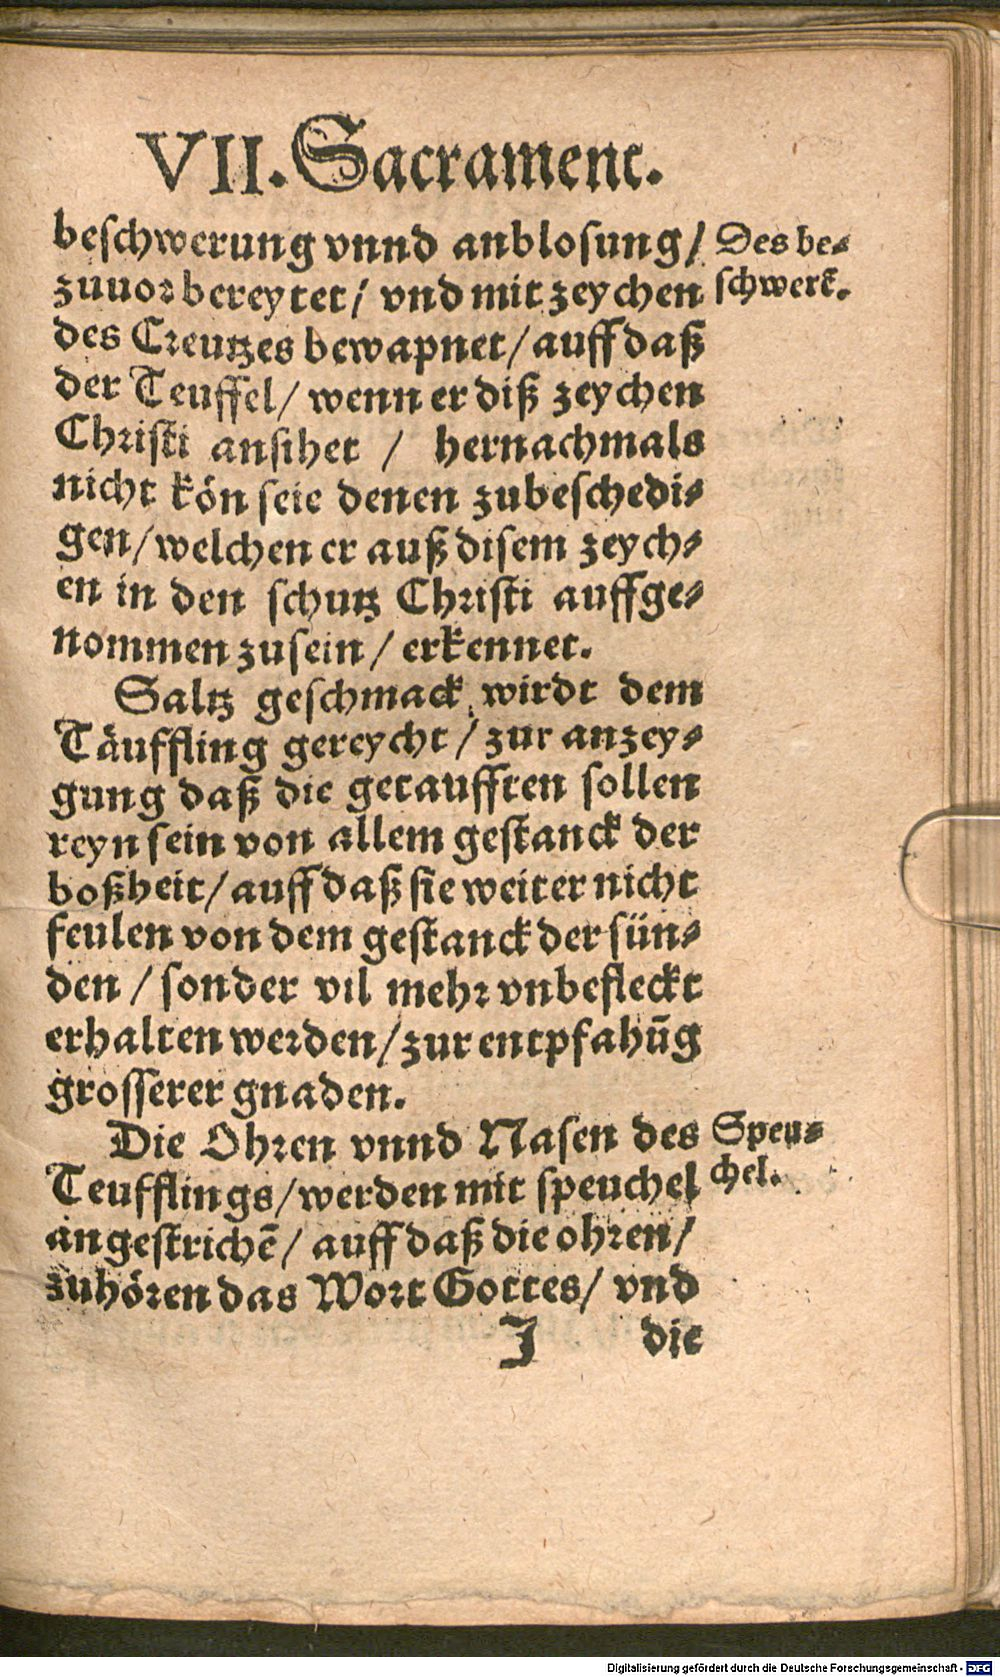 VII. Sacrament.
beschwerung vnnd anblosung/
Des be⸗
schwerk.
zuuor bereytet/ vnd mit zeychen
des Creutzes bewapnet/ auff daß
der Teuffel/ wenn er diß zeychen
Christi ansihet / hernachmals
nicht kön seie denen zubeschedi⸗
gen/ welchen er auß disem zeych⸗
en in den schutz Christi auffge⸗
nommen zusein/ erkennet.
Saltz geschmack wirdt dem
Täuffling gereycht/ zur anzey⸗
gung daß die getaufften sollen
reyn sein von allem gestanck der
boßheit/ auff daß sie weiter nicht
feulen von dem gestanck der sün⸗
den/ sonder vil mehr vnbefleckt
erhalten werden/ zur entpfahūg
grosserer gnaden.
Die Ohren vnnd Nasen des
Speu⸗
chel.
Teufflings/ werden mit speuchel
angestrichē/ auff daß die ohren/
zuhören das Wort Gottes/ vnd
J die
Digitalisierung gefördert durch die Deutsche Forschungsgemeinschaft - DFG